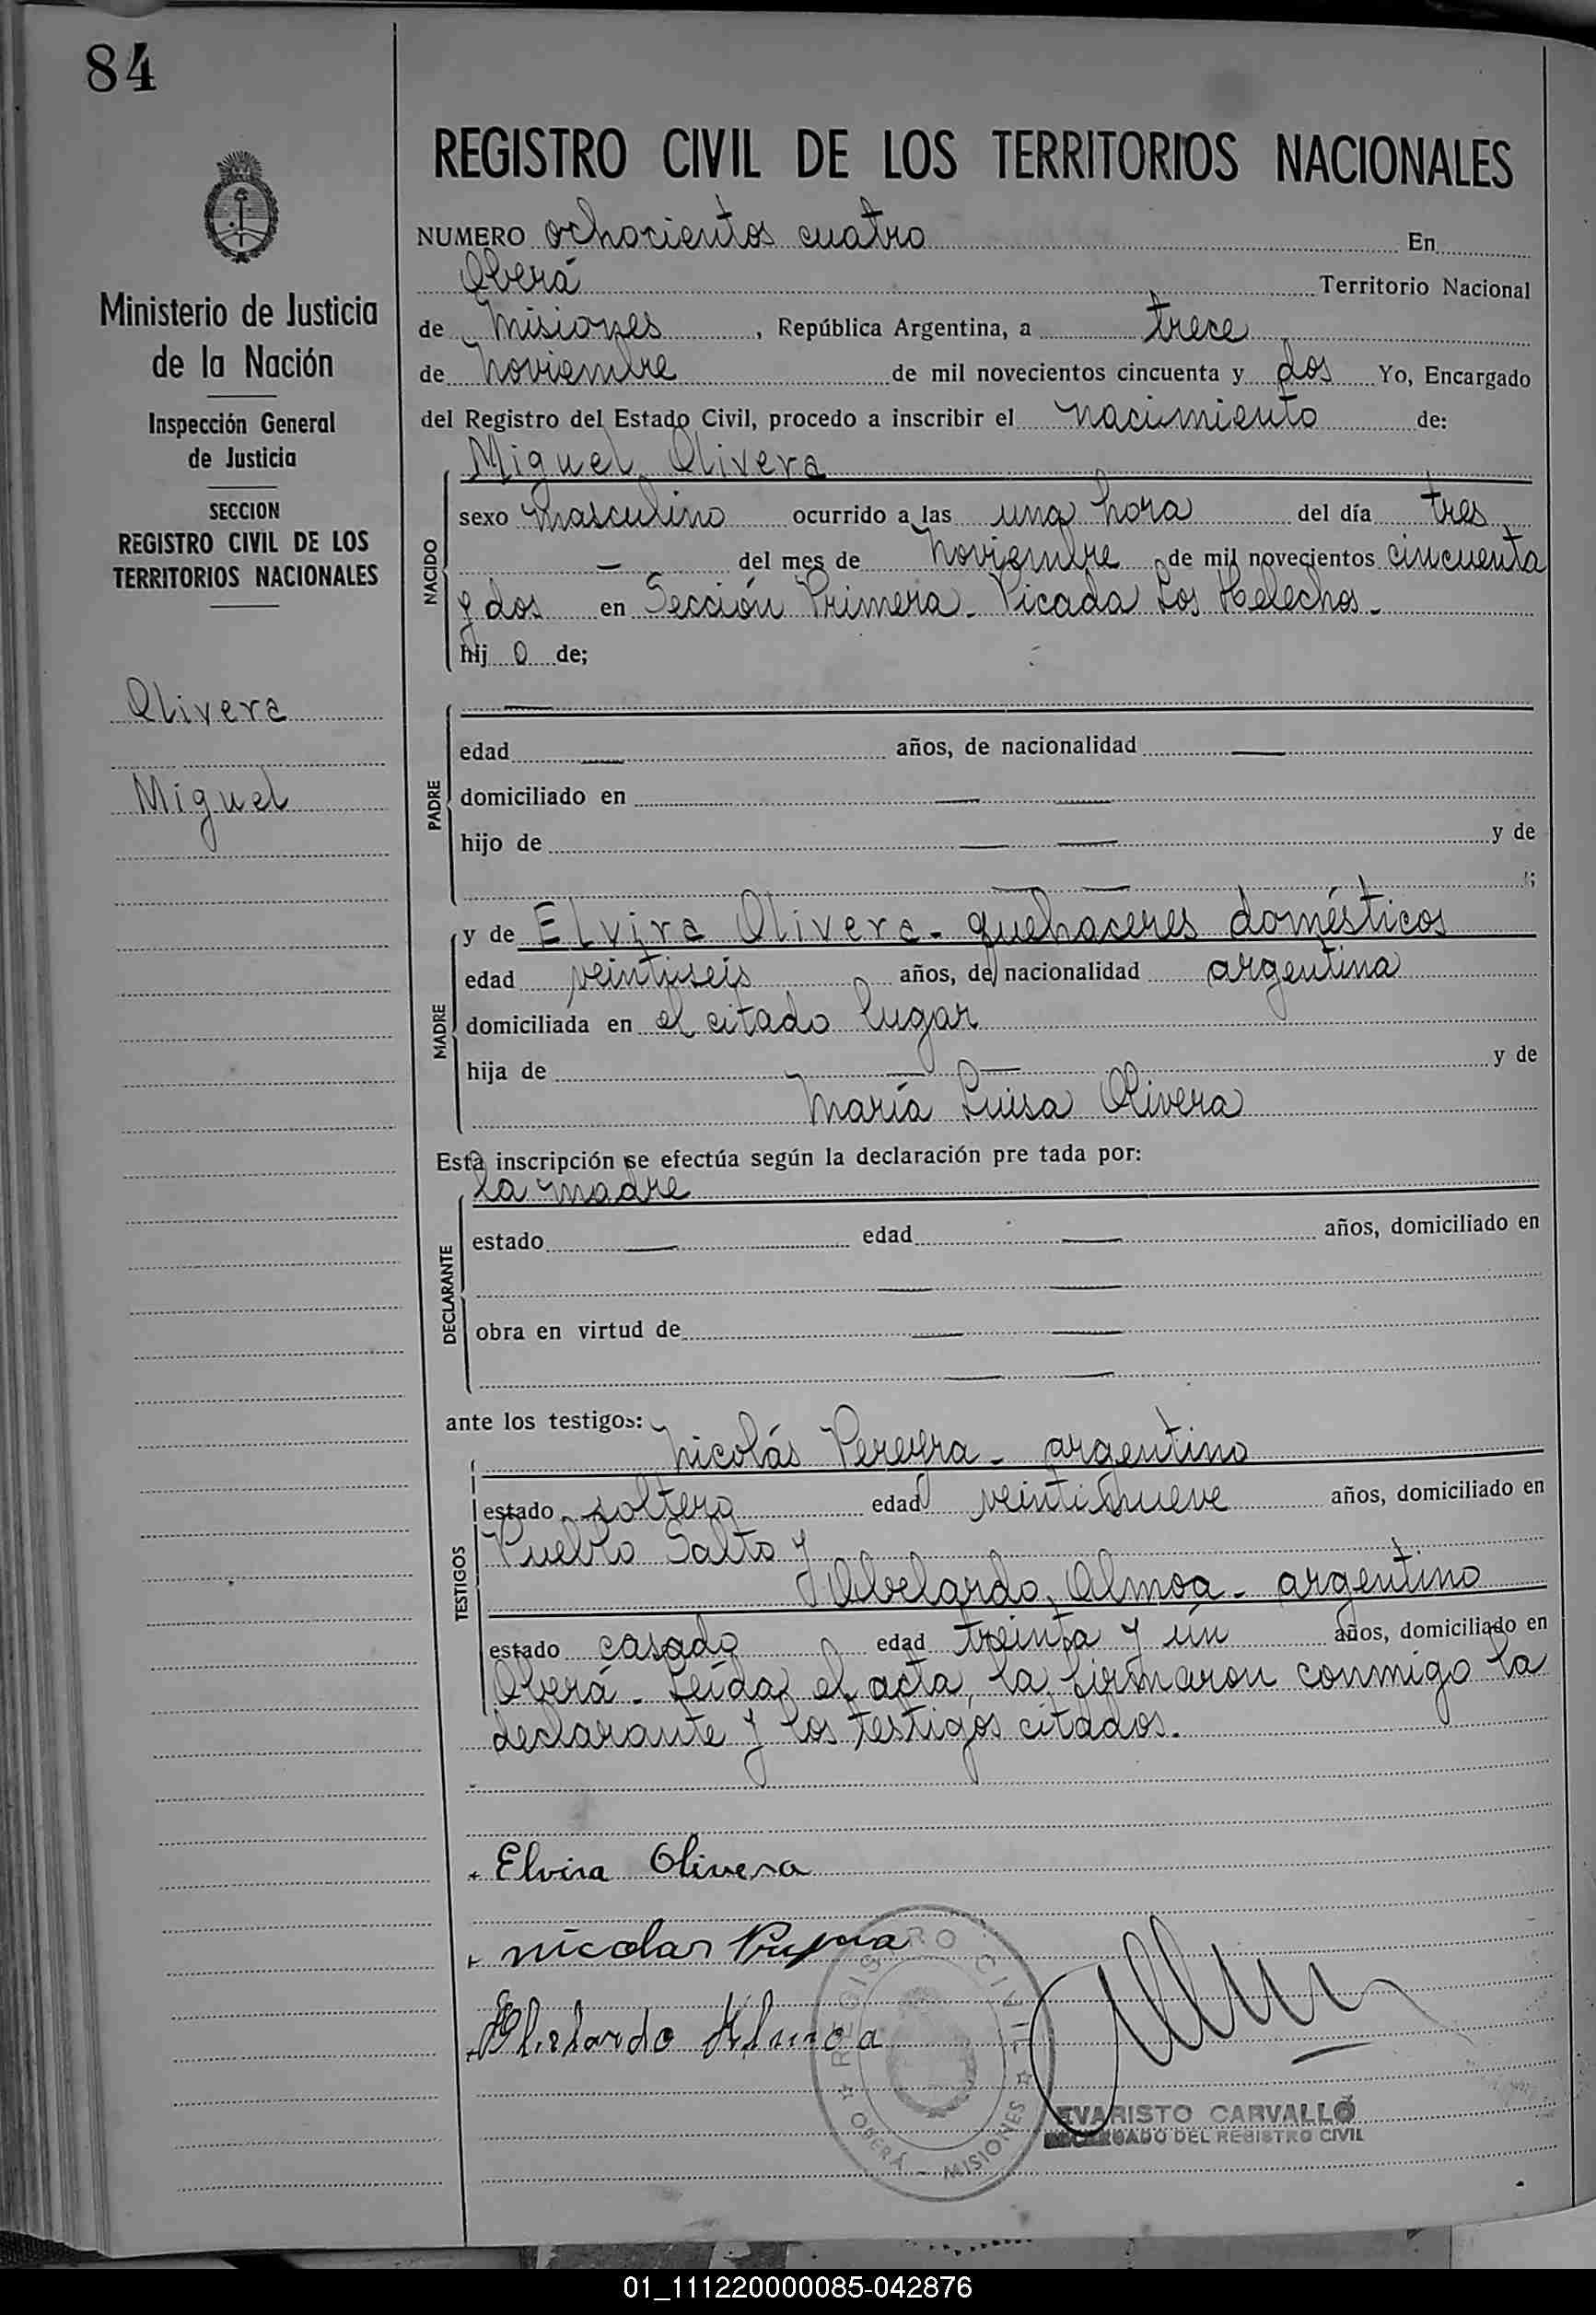 84
REGISTRO CIVIL DE LOS TERRITORIOS NACIONALES
NUMERO ochocientos cuatro En
Oberá Territorio Nacional
de Misiones, República Argentina, a trece
de Noviembre de mil novecientos cincuenta y dos Yo, Encargado
del Registro del Estado Civil, procedo a inscribir el nacimiento de:
Miguel Olivera
sexo masculino ocurrido a las una hora del día tres
— del mes de Noviembre de mil novecientos cincuenta
y dos en Sección Primera - Picada Los Helechos.-
hij o de;
NACIDO
Ministerio de Justicia
de la Nación
Inspección General
de Justicia
SECCION
REGISTRO CIVIL DE LOS
TERRITORIOS NACIONALES
Olivera
Miguel
—
edad — años, de nacionalidad —
domiciliado en — —
hijo de — — y de
— — ;
PADRE
y de Elvira Olivera - quehaceres domésticos
edad veintiseis años, de nacionalidad argentina
domiciliada en el citado lugar
hija de — — y de
María Luisa Olivera
MADRE
Esta inscripción se efectúa según la declaración pre tada por:
la madre
estado — edad — años, domiciliado en
— —
obra en virtud de — —
— —
DECLARANTE
ante los testigos:
Nicolás Pereyra - argentino
estado soltero edad veintinueve años, domiciliado en
Pueblo Salto y
Abelardo Almoa - argentino
estado casado edad treinta y un años, domiciliado en
Oberá. Leída el acta, la firmaron conmigo la
declarante y los testigos citados.
TESTIGOS
Elvira Olivera
Nicolas Pereyra
Abelardo Almoa
REGISTRO CIVIL
OBERÁ - MISIONES
EVARISTO CARVALLO
ENCARGADO DEL REGISTRO CIVIL
01_111220000085-042876